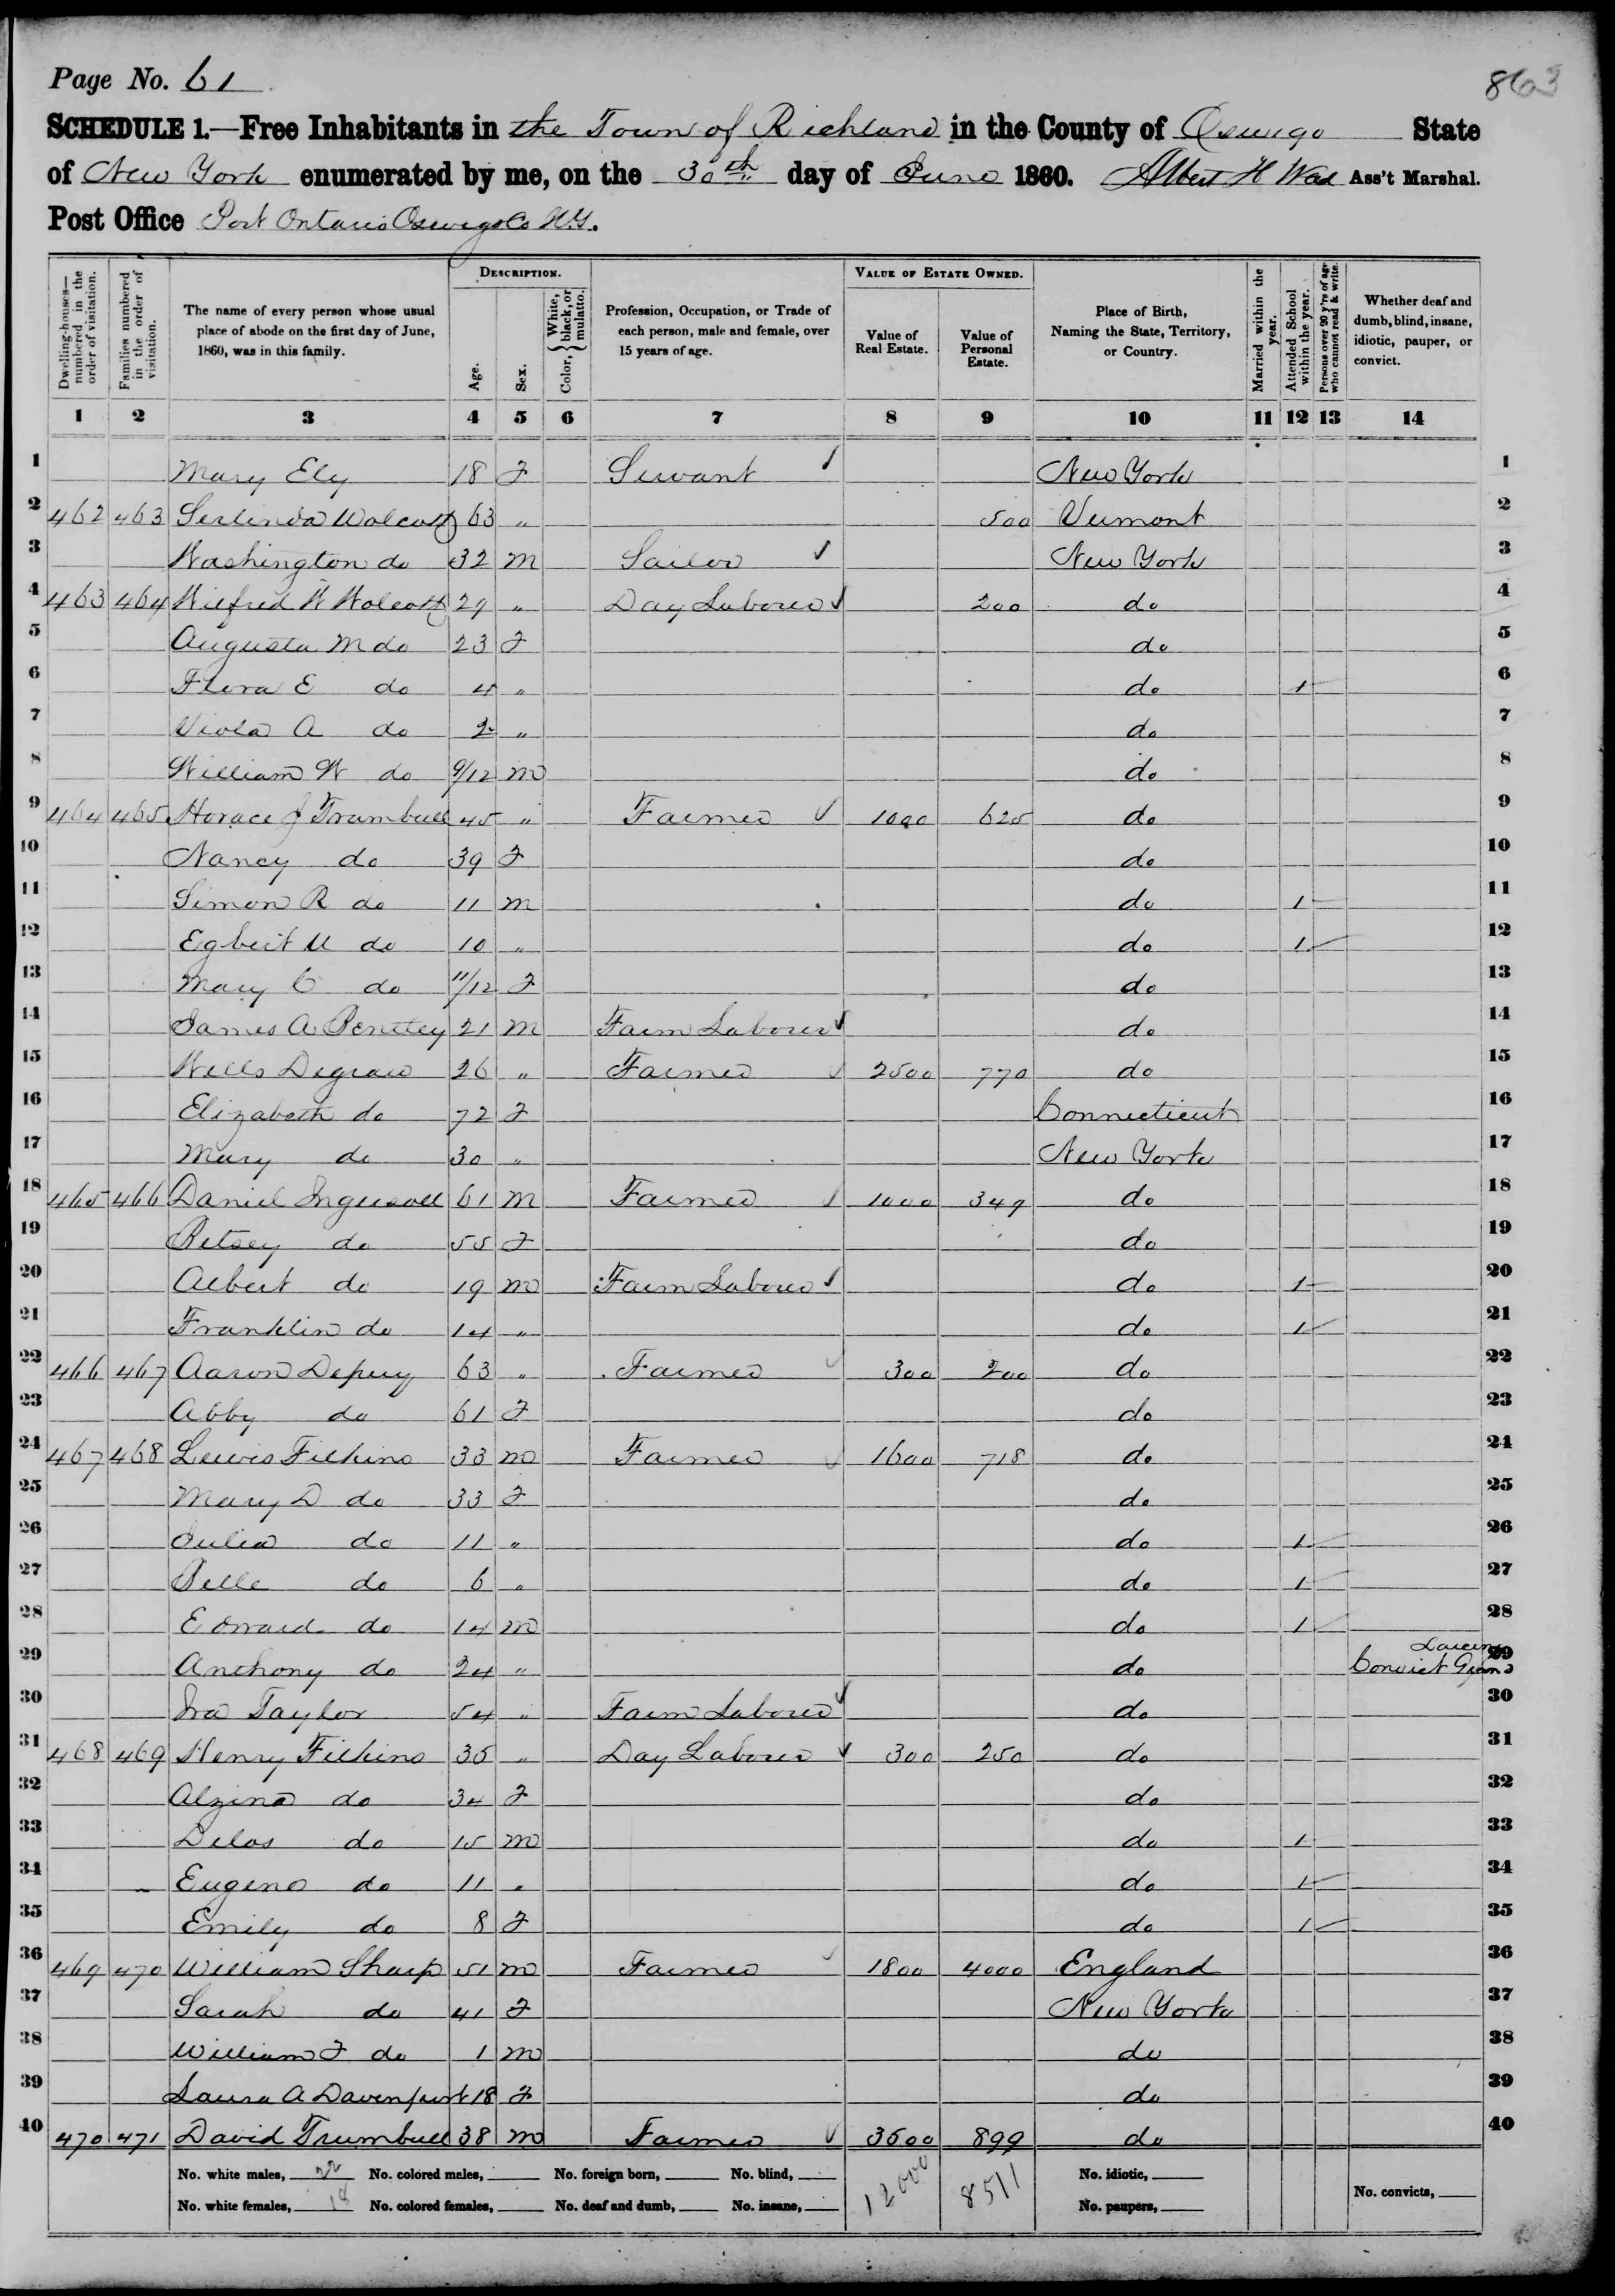 Page No. 61
863
SCHEDULE 1.—Free Inhabitants in the Town of Richland in the County of Oswego State
of New York enumerated by me, on the 30th day of June 1860. Albert H Ass't Marshal.
Post Office Port Ontario Oswego Co N.Y.
Dwelling-houses—numbered in the order of visitation.
Families numbered in the order of visitation.
The name of every person whose usual place of abode on the first day of June, 1860, was in this family.
DESCRIPTION.
Age.
Sex.
Color, { White, black, or mulatto.
Profession, Occupation, or Trade of each person, male and female, over 15 years of age.
VALUE OF ESTATE OWNED.
Value of Real Estate.
Value of Personal Estate.
Place of Birth, Naming the State, Territory, or Country.
Married within the year.
Attended School within the year.
Persons over 20 y'rs of age who cannot read & write.
Whether deaf and dumb, blind, insane, idiotic, pauper, or convict.
1 2 3 4 5 6 7 8 9 10 11 12 13 14
1 Mary Ely 18 F Servant ✓ New York 1
2 462 463 Serlinda Wolcott 63 " 500 Vermont 2
3 Washington do 32 m Sailor ✓ New York 3
4 463 464 Wilfred W Wolcott 29 " Day Laborer ✓ 200 do 4
5 Augusta M do 23 F do 5
6 Flora E do 4 " do 1 6
7 Viola A do 2 " do 7
8 William W do 9/12 m do 8
9 464 465 Horace J Trumbull 45 " Farmer ✓ 1000 625 do 9
10 Nancy do 39 F do 10
11 Simon R do 11 m do 1 11
12 Egbert U do 10 " do 1 12
13 Mary C do 11/12 F do 13
14 James A Bentley 21 m Farm Laborer ✓ do 14
15 Wells Degraw 26 " Farmer ✓ 2500 770 do 15
16 Elizabeth do 72 F Connecticut 16
17 Mary do 30 " New York 17
18 465 466 Daniel Ingersoll 61 m Farmer ✓ 1000 349 do 18
19 Betsey do 55 F do 19
20 Albert do 19 m Farm Laborer ✓ do 1 20
21 Franklin do 14 " do 1 21
22 466 467 Aaron Depuy 63 " Farmer ✓ 300 200 do 22
23 Abby do 61 F do 23
24 467 468 Lewis Filkins 33 m Farmer ✓ 1600 718 do 24
25 Mary D do 33 F do 25
26 Julia do 11 " do 1 26
27 Belle do 6 " do 1 27
28 Edward do 14 m do 1 28
29 Anthony do 24 " do Convict Grand Larceny 29
30 Ira Taylor 54 " Farm Laborer ✓ do 30
31 468 469 Henry Filkins 35 " Day Laborer ✓ 300 250 do 31
32 Alzina do 34 F do 32
33 Delos do 15 m do 1 33
34 Eugene do 11 " do 1 34
35 Emily do 8 F do 1 35
36 469 470 William Sharp 51 m Farmer ✓ 1800 4000 England 36
37 Sarah do 41 F New York 37
38 William F do 1 m do 38
39 Laura A Davenport 18 F do 39
40 470 471 David Trumbull 38 m Farmer ✓ 3500 899 do 40
No. white males, 22 No. colored males, No. foreign born, No. blind, 12000 8511 No. idiotic,
No. white females, 18 No. colored females, No. deaf and dumb, No. insane, No. paupers, No. convicts,